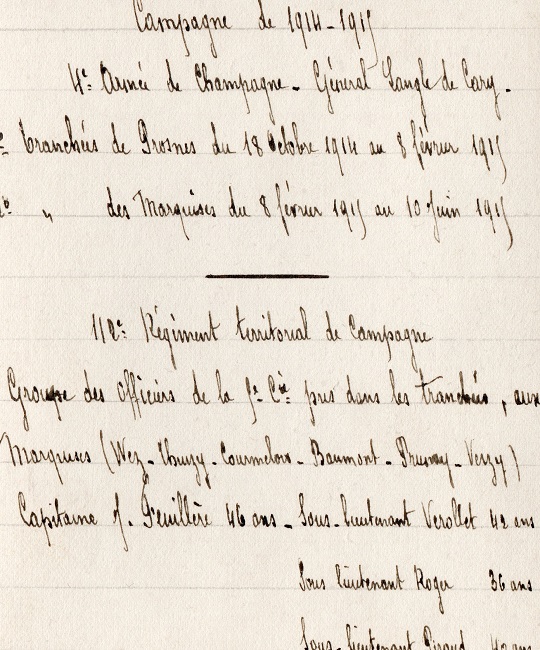 Campagne de 1914-1915
4e Armée de Champagne - Général Langle de Cary.
tranchées de Prosnes du 18 Octobre 1914 au 8 février 1915
2o " des Marquises du 8 février 1915 au 10 Juin 1915
112e Régiment territorial de Campagne
Groupe des officiers de la Cie pris dans les tranchées, aux
Marquises (Wez - Thuizy - Courmelois - Beaumont - Prunay - Verzy)
Capitaine J. Feuillère 46 ans - Sous-lieutenant Verollet 42 ans
Sous lieutenant Roger 36 ans
Sous-lieutenant